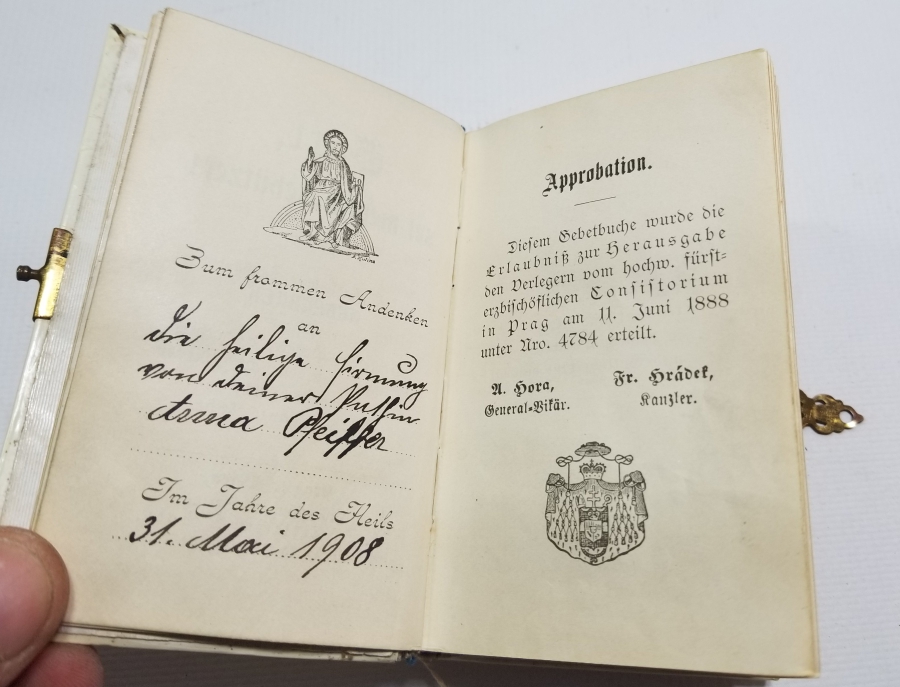 Zum frommen Andenken
an
die heilige Firmung
von deiner Pathin
Anna Pfeiffer
Im Jahre des Heils
31. Mai 1908
Approbation.
Diesem Gebetbuche wurde die
Erlaubniß zur Herausgabe
den Verlegern vom hochw. fürst-
erzbischöflichen Consistorium
in Prag am 11. Juni 1888
unter Nro. 4784 erteilt.
A. Hora,
General-Vikär.
Fr. Hrádek,
Kanzler.